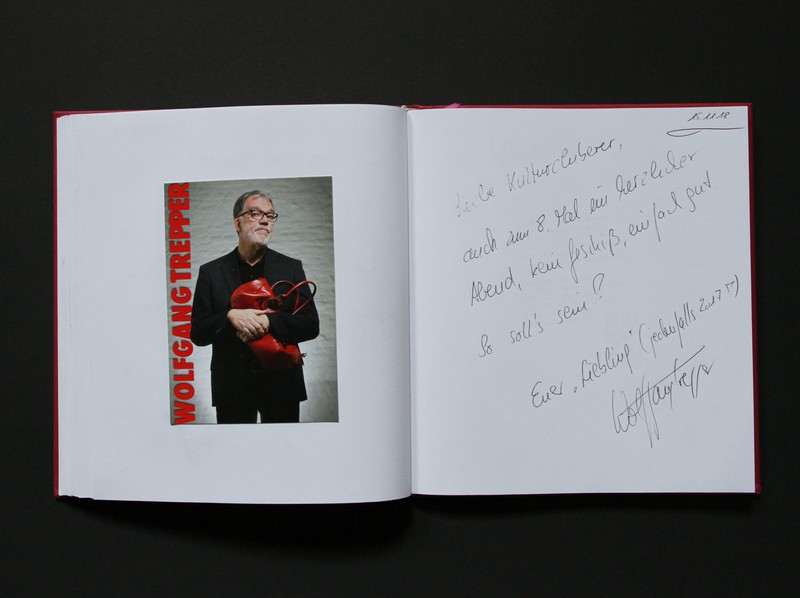 WOLFGANG TREPPER
15.11.18
Liebe Kulturcluberer,
auch zum 8. Mal ein herzlicher
Abend, kein Geschiß, einfach gut.
So soll's sein!
Euer "Liebling" (jedenfalls 2017
Wolfgang Trepper